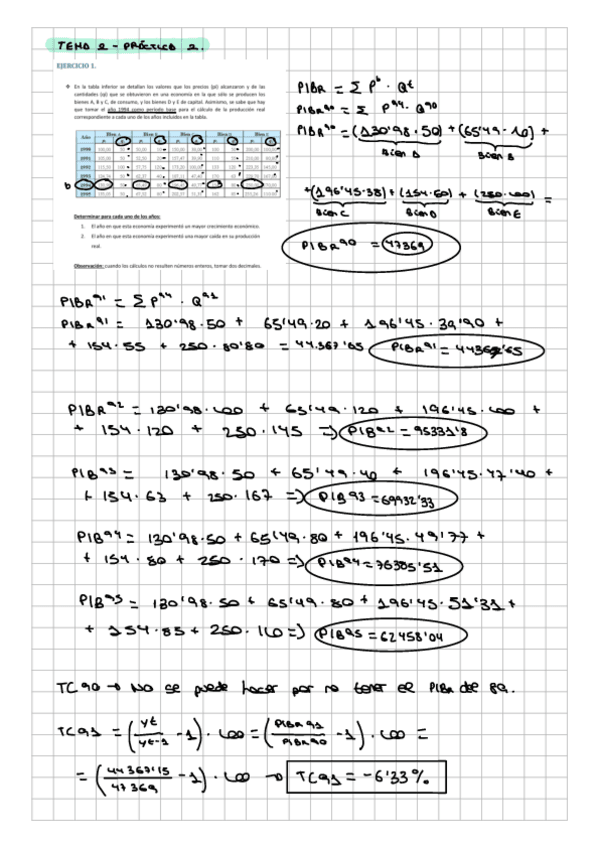 TEMA 2 - PRÁCTICA 2.
EJERCICIO 1.
En la tabla inferior se detallan los valores que los precios (pi) alcanzaron y de las
cantidades (qi) que se obtuvieron en una economía en la que sólo se producen los
bienes A, B y C, de consumo, y los bienes D y E de capital. Asimismo, se sabe que hay
que tomar el año 1994 como periodo base para el cálculo de la producción real
correspondiente a cada uno de los años incluidos en la tabla.
Año Bien A Bien B Bien C Bien D Bien E
1990
1991
1992
1993
1994
1995
b
Determinar para cada uno de los años:
1. El año en que esta economía experimentó un mayor crecimiento económico.
2. El año en que esta economía experimentó una mayor caída en su producción
real.
Observación: cuando los cálculos no resulten números enteros, tomar dos decimales.
PIBR = Σ P^b · Q^t
PIBR^90 = Σ P^94 · Q^90
PIBR^90 = (130'98·50) + (65'49·10) +
Bien A Bien B
+(196'45·38) + (154·50) + (250·100) =
Bien C Bien D Bien E
PIBR^90 = 47369
PIBR^91 = Σ P^94 · Q^91
PIBR^91 = 130'98·50 + 65'49·20 + 196'45·39'90 +
+ 154·55 + 250·80'80 = 44.367'65 PIBR^91 = 44367'65
PIBR^92 = 130'98·100 + 65'49·120 + 196'45·100 +
+ 154·120 + 250·145 => PIB^92 = 95331'8
PIB^93 = 130'98·50 + 65'49·40 + 196'45·47'40 +
+ 154·63 + 250·167 => PIB^93 = 69932'33
PIB^94 = 130'98·50 + 65'49·80 + 196'45·49'77 +
+ 154·80 + 250·170 => PIB^94 = 76385'51
PIB^95 = 130'98·50 + 65'49·80 + 196'45·51'31 +
+ 154·85 + 250·110 => PIB^95 = 62458'04
TC90 → No se puede hacer por no tener el PIBR del 89.
TC91 = (yt/yt-1 - 1) · 100 = (PIBR91/PIBR90 - 1) · 100 =
= (44367'15/47369 - 1) · 100 → TC91 = -6'33%.